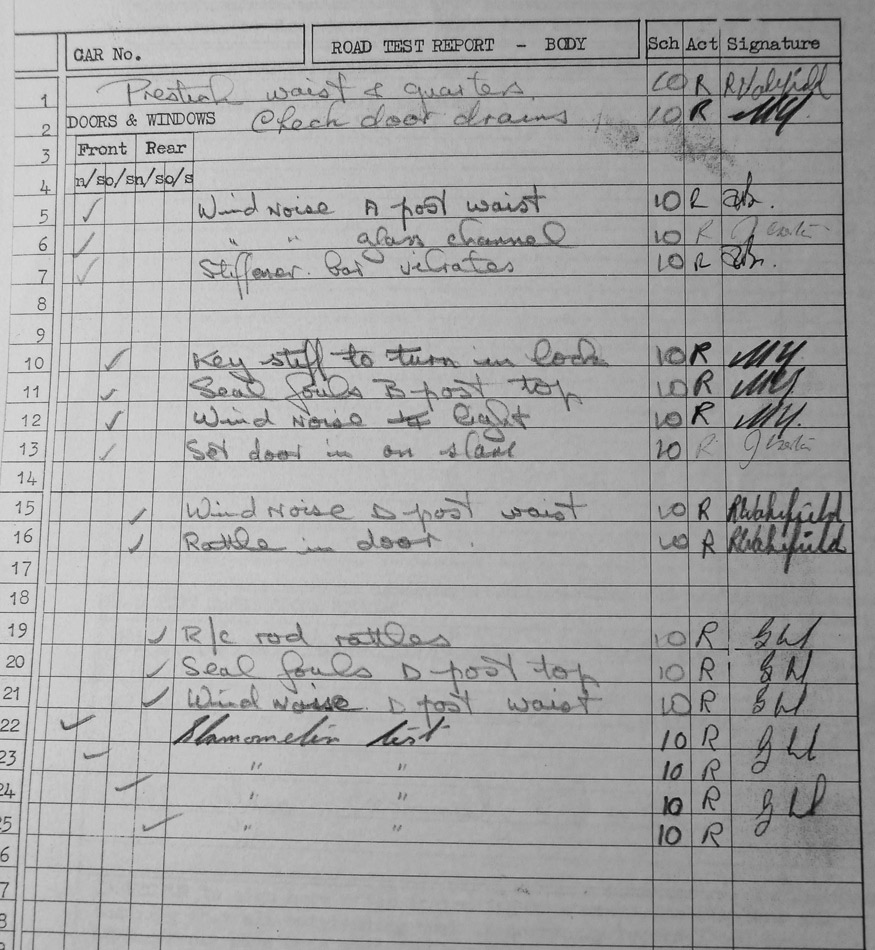 CAR No. ROAD TEST REPORT - BODY Sch Act Signature
1 Prestick waist & quarters 10 R RWakefield
2 DOORS & WINDOWS Check door drains 10 R MY
3 Front Rear
4 n/s o/s n/s o/s
5 ✓ Wind Noise A post waist 10 R
6 ✓ " " glass channel 10 R
7 ✓ Stiffener bar vibrates 10 R
8
9
10 ✓ Key stiff to turn in lock 10 R MY
11 ✓ Seal fouls B post top 10 R MY
12 ✓ Wind Noise light 10 R MY
13 ✓ Set door in on 20 R
14
15 ✓ Wind Noise D post waist 10 R RWakefield
16 ✓ Rattle in door. 10 R RWakefield
17
18
19 ✓ R/c rod rattles 10 R
20 ✓ Seal fouls D post top 10 R
21 ✓ Wind Noise D post waist 10 R
22 ✓ test 10 R
23 ✓ " " 10 R
24 ✓ " " 10 R
25 ✓ " " 10 R
6
7
8